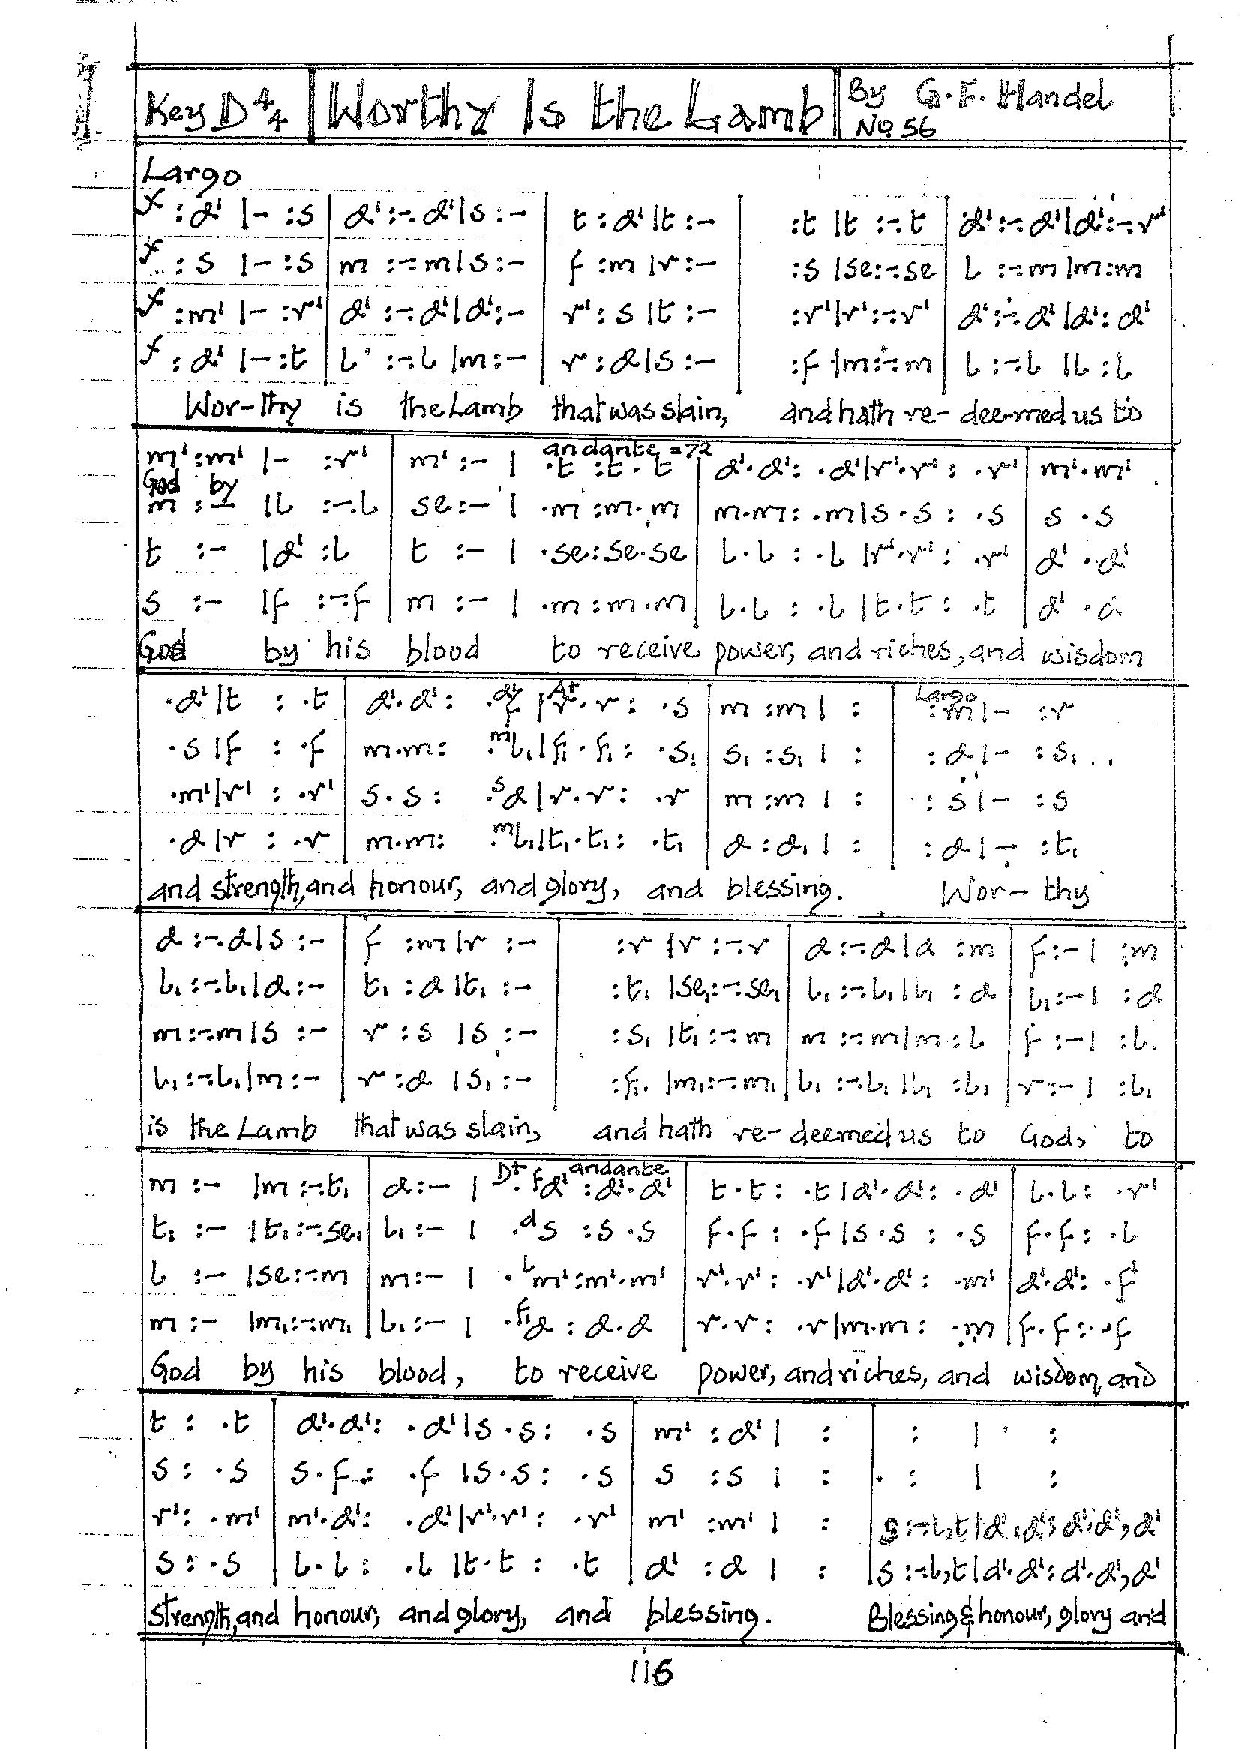 Key D 4/4 | Worthy Is the Lamb | By G.F. Handel
No 56
Largo
f :d' |- :s | d' :-.d'|s :- | t :d'|t :- | :t |t :-.t | d' :-.d'|d' :-.r'
f :s |- :s | m :-.m|s :- | f :m|r :- | :s |se :-.se | l :-.m|m :m
f :m' |- :r' | d' :-.d'|d' :- | r' :s|t :- | :r'|r' :-.r' | d' :-.d'|d' :d'
f :d' |- :t | l :-.l|m :- | r :d|s :- | :f|m :-.m | l :-.l|l :l
Wor-thy is the Lamb that was slain, and hath re-deemed us to
andante =72
m' :m' |- :r' | m' :- | .t :t.t | d'.d' : .d'|r'.r' : .r' | m'.m'
God by
m :- |l :-.l | se :- | .m :m.m | m.m : .m|s.s : .s | s.s
t :- |d' :l | t :- | .se :se.se | l.l : .l|r'.r' : .r' | d'.d'
s :- |f :-.f | m :- | .m :m.m | l.l : .l|t.t : .t | d'.d
God by his blood to receive power, and riches, and wisdom
Largo
.d'|t : .t | d'.d' : .d'f |r.r : .s | m :m | : | :m |- :r
.s|f : .f | m.m : .ml₁|f₁.f₁ : .s₁ | s₁ :s₁ | : | :d |- :s₁
.m'|r' : .r' | s.s : .sd|r.r : .r | m :m | : | :s |- :s
.d|r : .r | m.m : .ml₁|t₁.t₁ : .t₁ | d :d₁ | : | :d |- :t₁
and strength, and honour, and glory, and blessing. Wor-thy
d :-.d|s :- | f :m|r :- | :r |r :-.r | d :-.d|d :m | f :- | :m
l₁ :-.l₁|d :- | t₁ :d|t₁ :- | :t₁ |se₁ :-.se₁ | l₁ :-.l₁|l₁ :d | l₁ :- | :d
m :-.m|s :- | r :s|s :- | :s₁ |t₁ :-.m | m :-.m|m :l | f :- | :l
l₁ :-.l₁|m :- | r :d|s₁ :- | :f₁ |m₁ :-.m₁ | l₁ :-.l₁|l₁ :l₁ | r :- | :l₁
is the Lamb that was slain, and hath re-deemed us to God, to
Dt andante
m :- |m :-.t₁ | d :- | .fd' :d'.d' | t.t : .t|d'.d' : .d' | l.l : .r'
t₁ :- |t₁ :-.se₁ | l₁ :- | .ds :s.s | f.f : .f|s.s : .s | f.f : .l
l :- |se :-.m | m :- | .lm' :m'.m' | r'.r' : .r'|d'.d' : .m' | d'.d' : .f'
m :- |m₁ :-.m₁ | l₁ :- | .f₁d :d.d | r.r : .r|m.m : .m | f.f : .f
God by his blood, to receive power, and riches, and wisdom, and
t : .t | d'.d' : .d'|s.s : .s | m' :d' | : | : | :
s : .s | s.f : .f|s.s : .s | s :s | : | : | :
r' : .m' | m'.d' : .d'|r'.r' : .r' | m' :m' | : | s :-.l,t|d'.d' :d'.d',d'
s : .s | l.l : .l|t.t : .t | d' :d | : | s :-.l,t|d'.d' :d'.d',d'
strength, and honour, and glory, and blessing. Blessing & honour, glory and
116